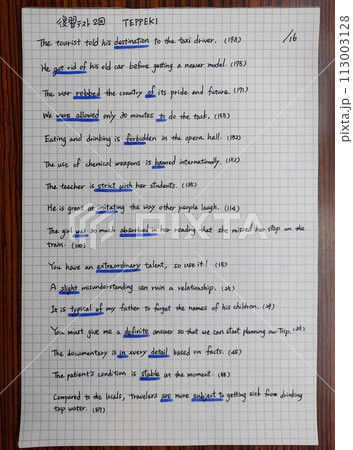 復習テスト2回 TEPPEKI /16
The tourist told his destination to the taxi driver. (183)
He got rid of his old car before getting a newer model. (175)
The war robbed the country of its pride and future. (171)
We were allowed only 30 minutes to do the task. (153)
Eating and drinking is forbidden in the opera hall. (152)
The use of chemical weapons is banned internationally. (151)
The teacher is strict with her students. (135)
He is great at imitating the way other people laugh. (114)
The girl was so much absorbed in her reading that she missed her stop on the
train. (100)
You have an extraordinary talent, so use it! (15)
A slight misunderstanding can ruin a relationship. (24)
It is typical of my father to forget the names of his children. (29)
You must give me a definite answer so that we can start planning our trip. (36)
The documentary is in every detail based on facts. (45)
The patient's condition is stable at the moment. (48)
Compared to the locals, travelers are more subject to getting sick from drinking
tap water. (59)
PIXTA
pixta.jp - 113003128